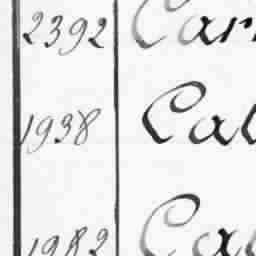 2392 Carn
1938 Cal
1982 Cal